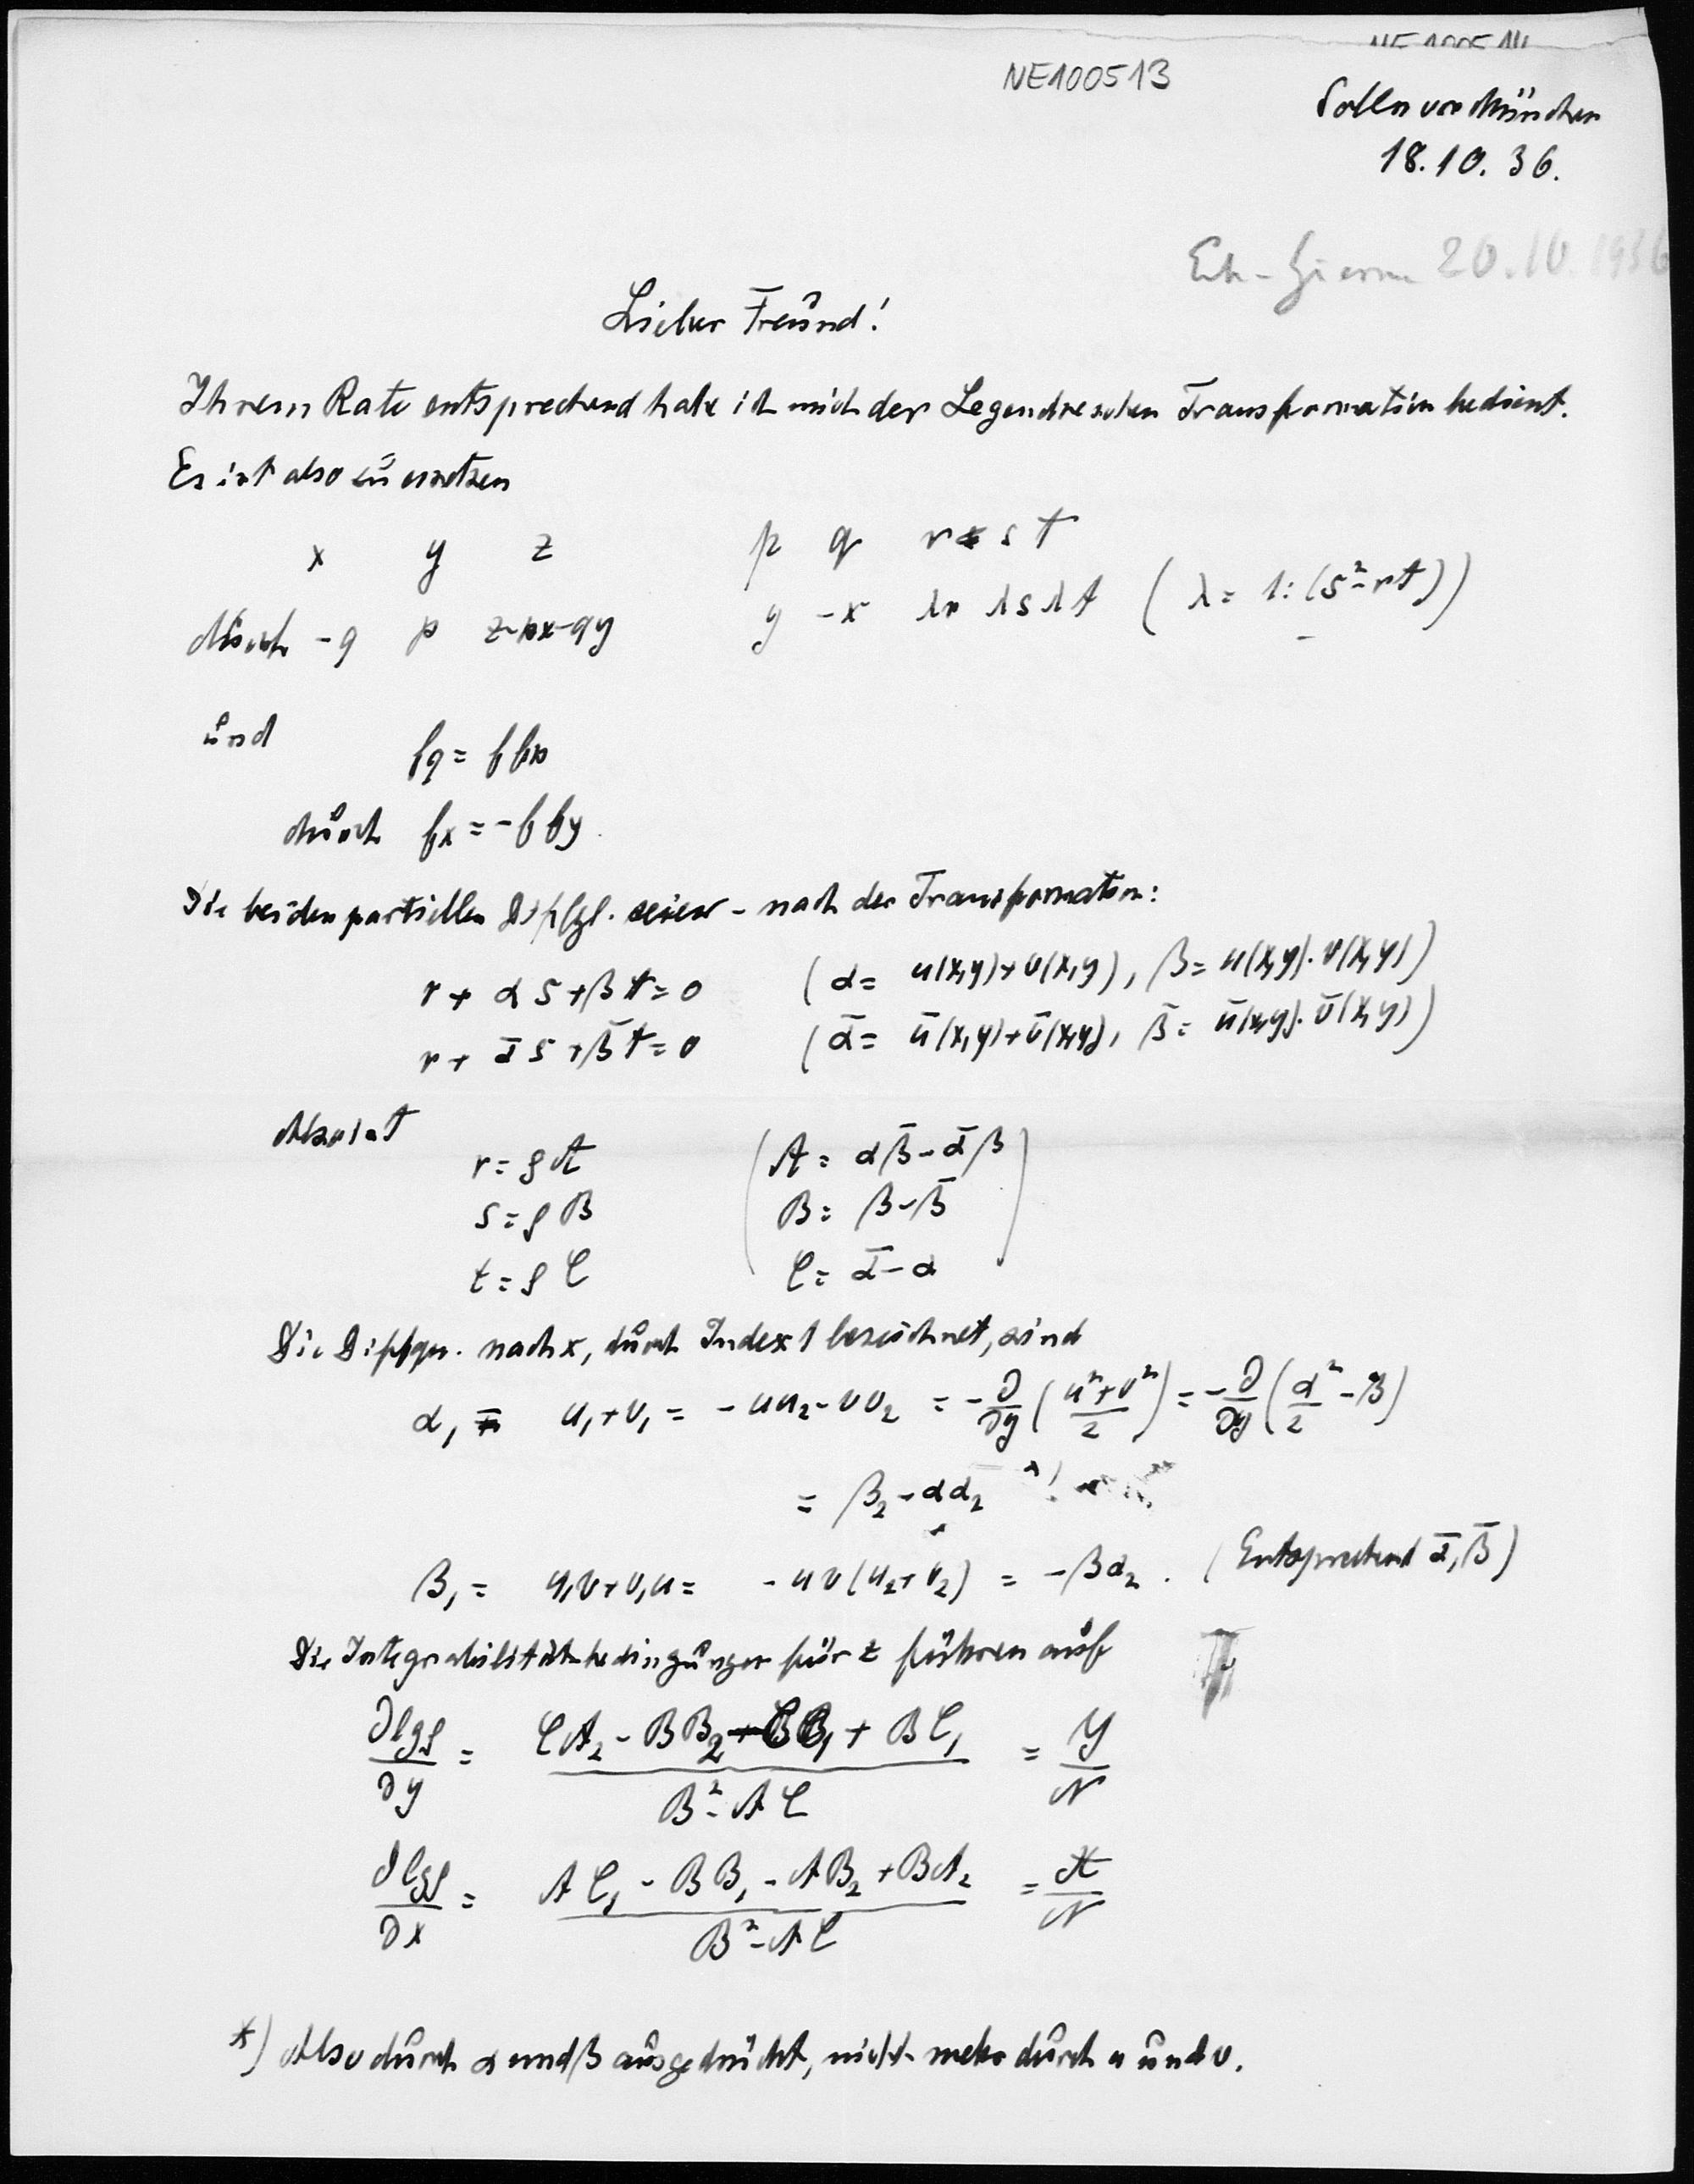 NE100514
NE100513
Solln vor München
18.10.36.
20.10.1936
Lieber Freund!
Ihrem Rate entsprechend habe ich mich der Legendreschen Transformation bedient.
Es ist also zu ersetzen
x y z p q r s t
durch -q p z-px-qy y -x λr λs λt (λ = 1:(s²-rt))
und fq = f fp
durch fx = -f fy.
Die beiden partiellen Diffgl. seien - nach der Transformation:
r + αs + βt = 0 (α = u(x,y)+v(x,y), β = u(x,y)·v(x,y))
r + ᾱs + β̄t = 0 (ᾱ = ū(x,y)+v̄(x,y), β̄ = ū(x,y)·v̄(x,y))
Also ist
r = ρA (A = αβ̄ - ᾱβ
s = ρB B = β - β̄
t = ρC C = ᾱ - α)
Die Diffqu. nach x, durch Index 1 bezeichnet, sind
α₁ = u₁+v₁ = -uu₂-vv₂ = -∂/∂y ((u²+v²)/2) = -∂/∂y (α²/2 - β)
= β₂ - αα₂ *)
β₁ = u₁v+v₁u = -uv(u₂+v₂) = -βα₂. (Entsprechend ᾱ, β̄)
Die Integrabilitätsbedingungen für z führen auf
∂lgρ/∂y = (CA₂ - BB₂ - CB₁ + BC₁)/(B² - AC) = Y/N
∂lgρ/∂x = (AC₁ - BB₁ - AB₂ + BA₂)/(B² - AC) = X/N
*) Also durch α und β ausgedrückt, nicht mehr durch u und v.